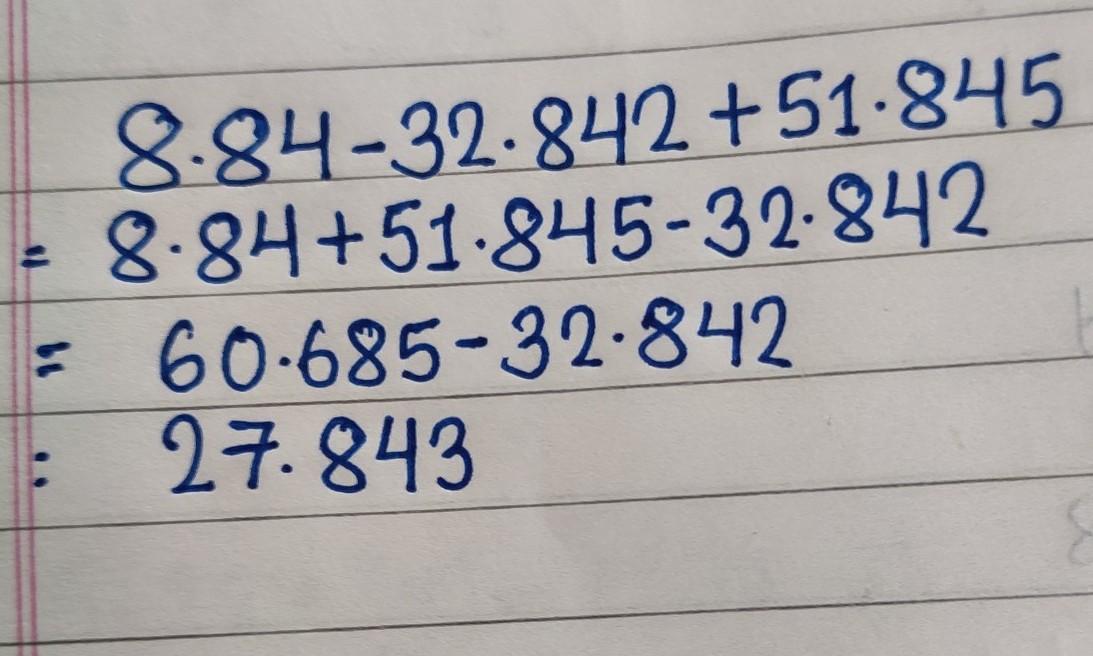 8.84-32.842+51.845
= 8.84+51.845-32.842
= 60.685-32.842
: 27.843